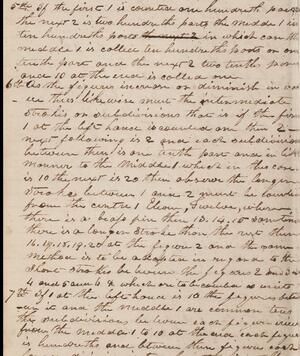 5th If the first 1 is counted one hundredth part
the next 2 is two hundredth parts the middle 1 is
ten hundredth parts in which case the
middle 1 is called ten hundredth parts or one
tenth part and the next 2 two tenths parts
and 10 at the end is called one
6th As the figures increase or diminish in value
so likewise must the intermediate
Strokes or subdivisions that is if the first
1 at the left hand is counted one then 2
next following is 2 and each subdivision
between them is one tenth part and in like
manner to the Middle 1 which in this case
is 10 the next is 20 then observe the longer
Strokes between 1 and 2 must be counted
from the centre 1 Eleven, Twelve, where
there is a brass pin then 13. 14. 15 sometimes
there is a longer Stroke than the rest then
16. 17. 18. 19. 20 at the figure 2 and the same
method is to be adopted in regard to the
short Strokes between the figures 2 and 3
4 and 5 and 6 &c which are to be counted as units
7th If 1 at the left hand is 10 the figures between
it and the middle 1 are common tens
the subdivisions between each figure units
from the middle 1 to 10 at the end each figure
is hundreds and between these figures each